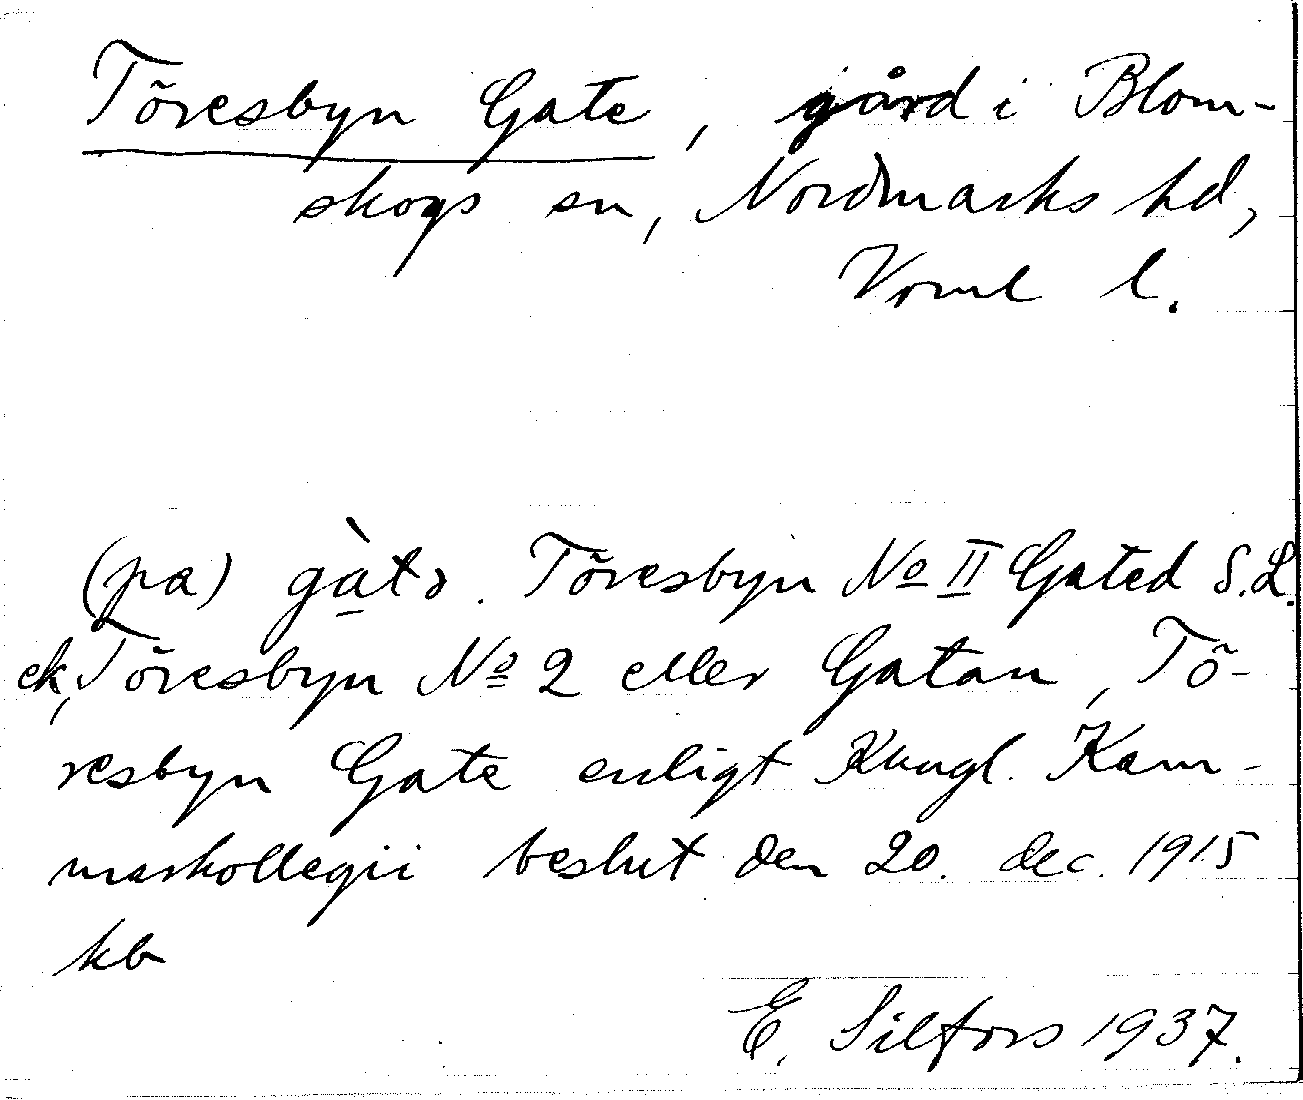 Töresbyn Gate, gård i Blom-
skogs sn, Nordmarks hd,
Verml l.
(pa) gàtə. Töresbyn No II Gated S.L.
ek, Töresbyn No 2 eller Gatan, Tö-
resbyn Gate enligt Kungl. Kam-
markollegii beslut den 20. dec. 1915
kb
E. Silfors 1937.